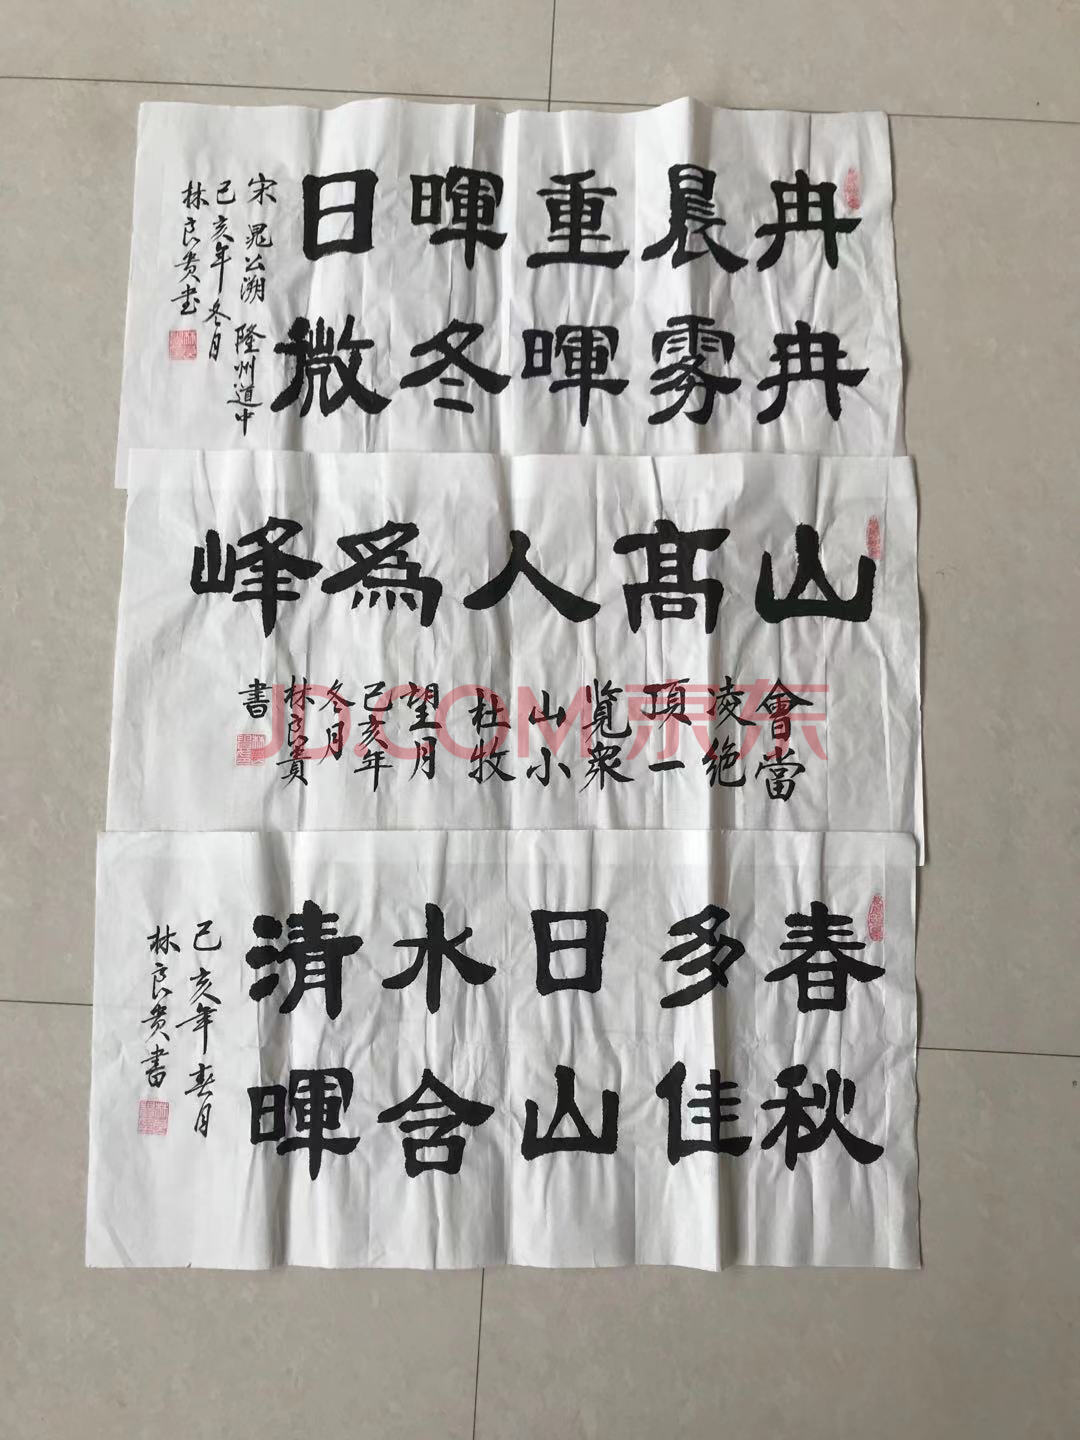 冉冉
晨雾
重暉
暉冬
日微
宋 晁公溯 隆州道中
己亥年冬月
林良贵书
山髙人為峰
會當
凌絶
頂一
覧衆
山小
杜牧
望月
己亥年
冬月
林良貴
書
春秋
多佳
日山
水含
清暉
己亥年 春月
林良贵書
JD.COM 京东